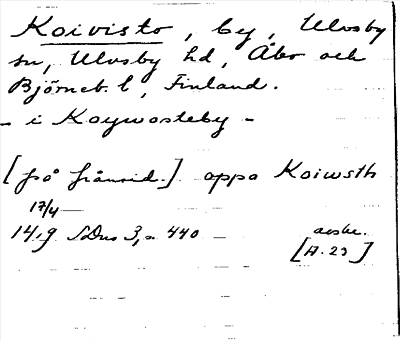 Koivisto, by, Ulvsby
sn, Ulvsby hd, Åbo och
Björneb. l, Finland.
- i Koywosteby -
[på frånsid.] oppa Koiwsth
17/4
1419 SDns 3, s. 440
avskr.
[A. 23]